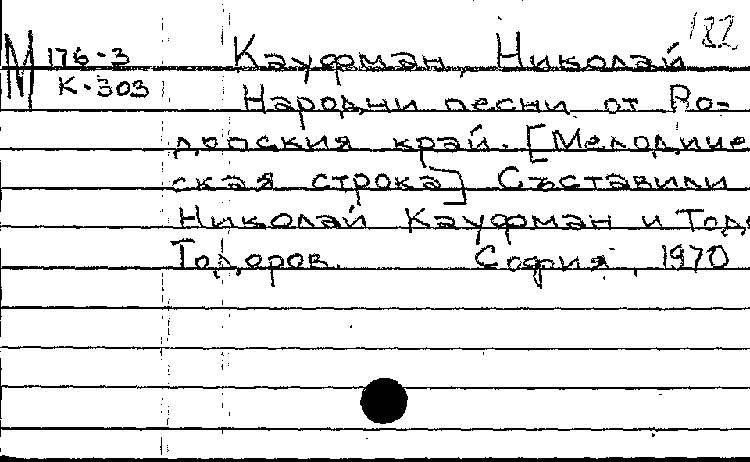 182
М 176-3 Кауфман, Николай
К-303 Народни песни от Ро-
допския край. [Мелодиче
ская строка] Съставили
Николай Кауфман и Тодо
Тодоров. София, 1970